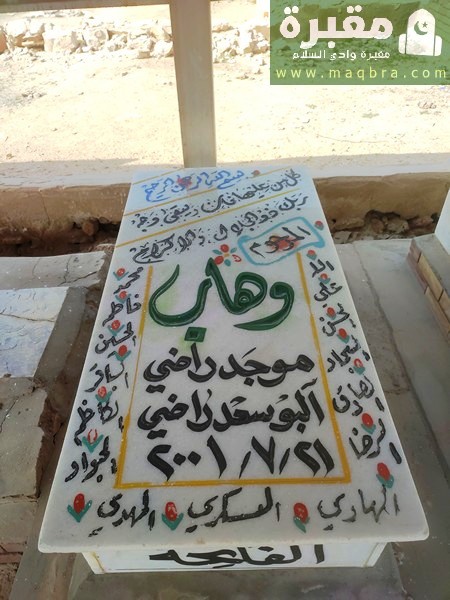 مقبرة
مقبرة وادي السلام
www.maqbra.com
بسم الله الرحمن الرحيم
كل من عليها فان ويبقى وجه
ربك ذو الجلال والاكرام
المرحوم
وهاب
موجد راضي
آلبو سعد راضي
٢٠٠١/٧/٢١
محمد
فاطمة
الحسين
الباقر
الكاظم
الجواد
الله
علي
الحسن
السجاد
الصادق
الرضا
الهادي العسكري المهدي
الفاتحة